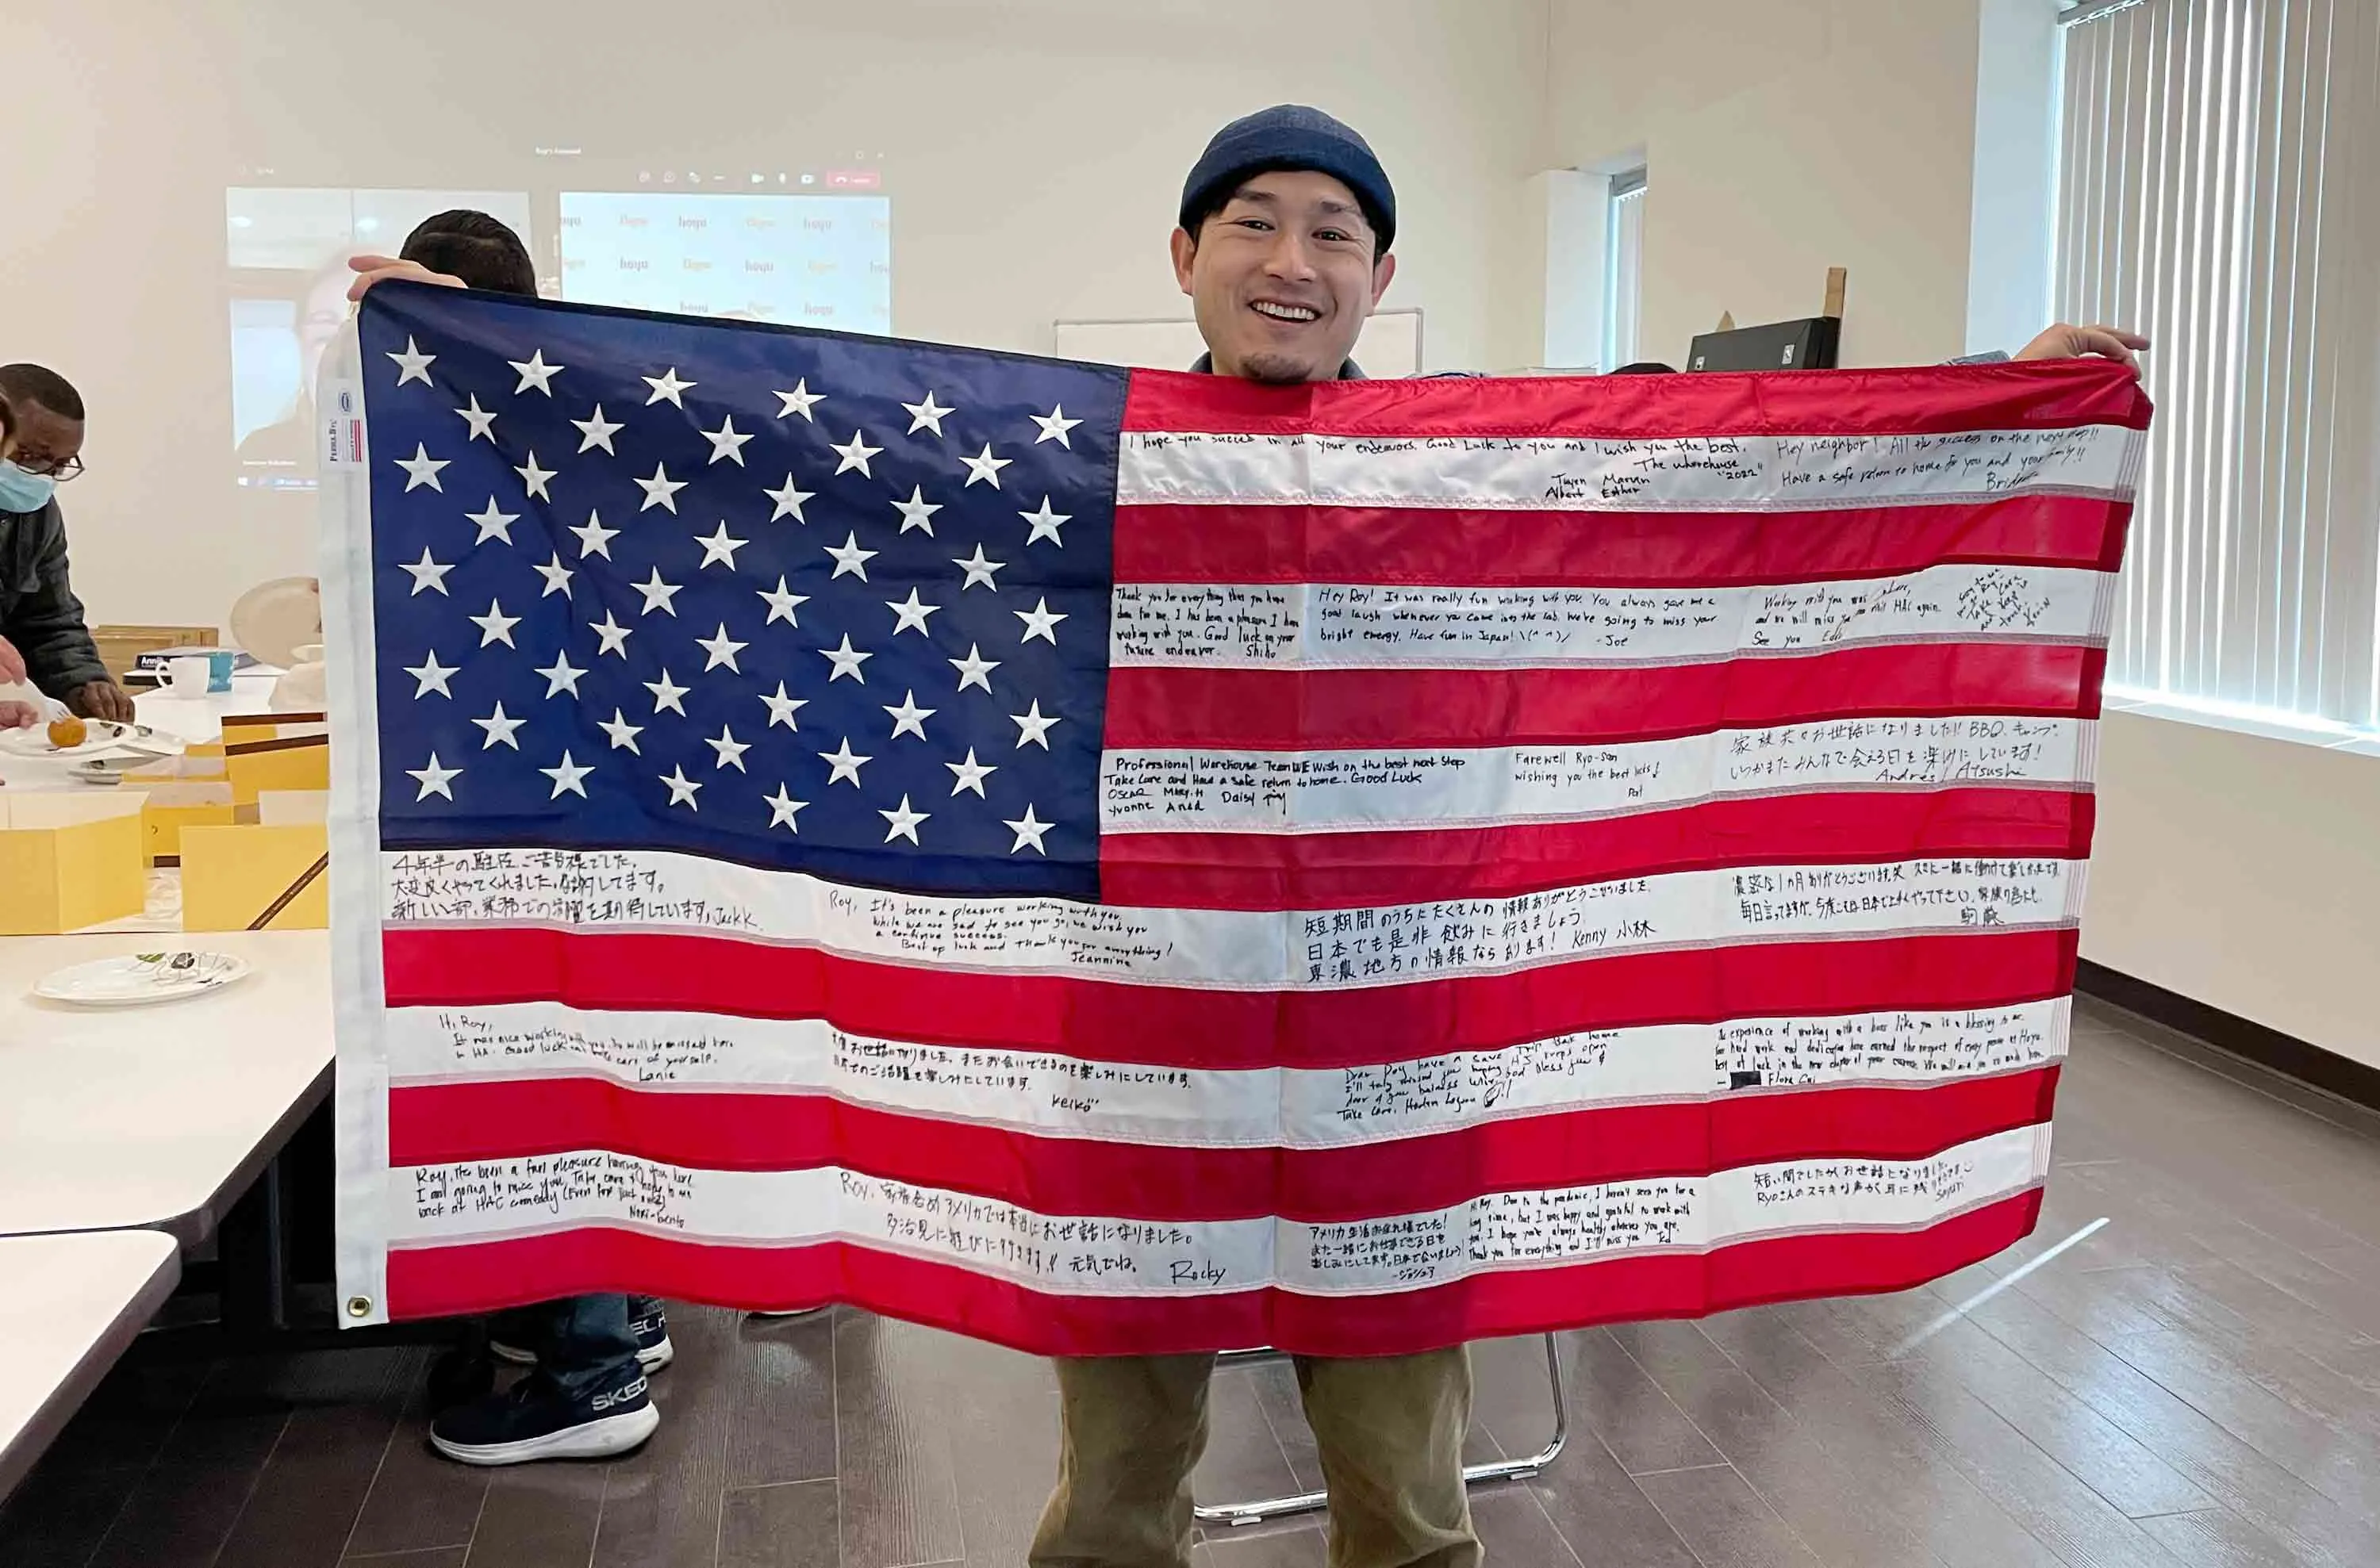 hoyu hoyu
hoyu hoyu
hoyu hoyu
I hope you succed in all your endeavors. Good Luck to you and I wish you the best.
The wherehouse
"2022"
Tuyen Marvin
Albert Esther
Hey neighbor! All the success on the next step!!
Have a safe return to home for you and your family!!
Thank you for everything that you have
done for me. I has been a pleasure I have
working with you. Good luck on your
future endeavor. Shiho
Hey Roy! It was really fun working with you. You always gave me a
good laugh whenever you come into the lab. We're going to miss your
bright energy. Have fun in Japan! \(^ ^)/ -Joe
Working with you was
and we will miss you HAC again.
See you
Take Care
Professional Warehouse Team WE Wish on the best next step
Take Care and Have a safe return to home. Good Luck
Oscar Mary.H
Yvonne Daisy
Farewell Ryo-san
wishing you the best
Pat
家族共々お世話になりました!! BBQ、キャンプ、
いつかまたみんなで会える日を楽しみにしています!
Andres/Atsushi
4年半の駐在、ご苦労様でした。
大変良くやってくれました。感謝してます。
新しい部、業務での活躍を期待しています。Jack K.
Roy, It's been a pleasure working with you.
While we are sad to see you go, we wish you
a continue success.
Best of luck and thank you for everything!
Jeannine
短期間のうちにたくさんの情報ありがとうございました。
日本でも是非飲みに行きましょう
東濃地方の情報なら あります! Kenny 小林
濃密な1ヵ月ありがとうございます。笑 一緒に働けて楽しかったです。
毎日言ってますが、今度こそは日本で上手くやって下さい。
Hi Roy,
It was nice working with you. You will be missed here
in HAC. Good luck and take care of yourself.
Lanie
お世話になりました。またお会いできるのを楽しみにしています。
でのご活躍を楽しみにしています。
Keiko
Dear Roy have a save trip back home
I'll truly missed you
God bless you &
Take Care,
experience of working with a boss like you is a blessing to me.
hard work and dedication have earned the respect of every person at Hoyu.
best of luck in the new chapter of your career. We will
Flora Cai
Roy, It's been a fun pleasure having you here!
I am going to miss you, Take care &
back at HAC comedy (Even for just once)
Roy、家族含めアメリカでは本当にお世話になりました。
多治見に遊びに行きます!! 元気でね。 Rocky
アメリカ生活お疲れ様でした!
また一緒にお仕事できる日を
楽しみにしてます。日本で会いましょう!
-ジョシュア
Hi Roy. Due to the pandemic, I haven't seen you for a
long time, but I was happy and grateful to work with
you. I hope you're always healthy wherever you are.
Thank you for everything and I'll miss you
短い間でしたがお世話になりました。
Ryoさんのステキな声が耳に残
SKEC